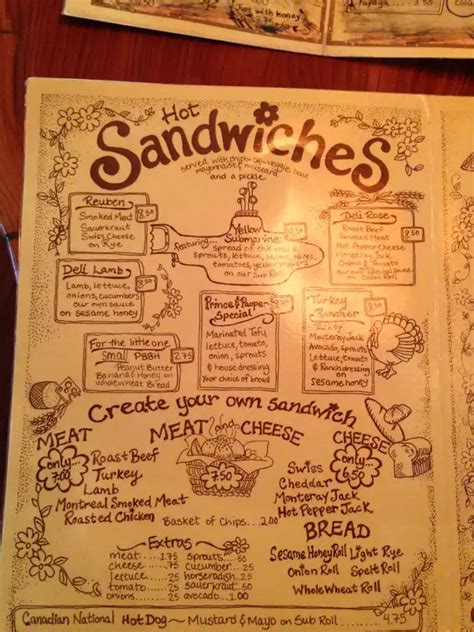 just with honey
Papaya
Hot
Sandwiches
served with chips or veggie bowl
mayonnaise, mustard
and a pickle
Reuben
8.50
Smoked Meat
Sauerkraut
Swiss Cheese
on Rye
featuring...
Yellow
Submarine
spread of the week
sprouts, lettuce, onions, olives,
tomatoes, yellow
on our Sub Roll
Deli Rose
8.50
Roast Beef
Smoked Meat
Hot Pepper Cheese
Monterey Jack
Onions & Tomatoes
with our special sauce on
Onion Roll
Deli Lamb
8.50
Lamb, lettuce,
onions, cucumbers
our own sauce
on sesame honey
Prince & Pauper
Special
Marinated Tofu
lettuce, tomato,
onion, sprouts
& house dressing
Your choice of bread
Turkey
Rancher
Turkey
Monterey Jack
Avocado, Sprouts
Lettuce, tomato
& Ranch dressing
on
sesame honey
For the little one
Small PBBH
2.75
Peanut Butter
Banana & Honey on
Whole wheat Bread
Create your own sandwich
MEAT
only...
7.00
Roast Beef
Turkey
Lamb
Montreal Smoked Meat
Roasted Chicken
MEAT and CHEESE
7.50
Basket of Chips ..2.00
CHEESE
only...
6.50
Swiss
Cheddar
Monteray Jack
Hot Pepper Jack
BREAD
Sesame Honey Roll Light Rye
Onion Roll Spelt Roll
Whole Wheat Roll
Extras
meat ..... 2.75 sprouts .50
cheese .... .75 cucumber .25
lettuce .... .25 horseradish .25
tomato ... .50 sauces .25
onions .... .25 avocado.. 1.00
Canadian National Hot Dog ~ Mustard & Mayo on Sub Roll 4.75